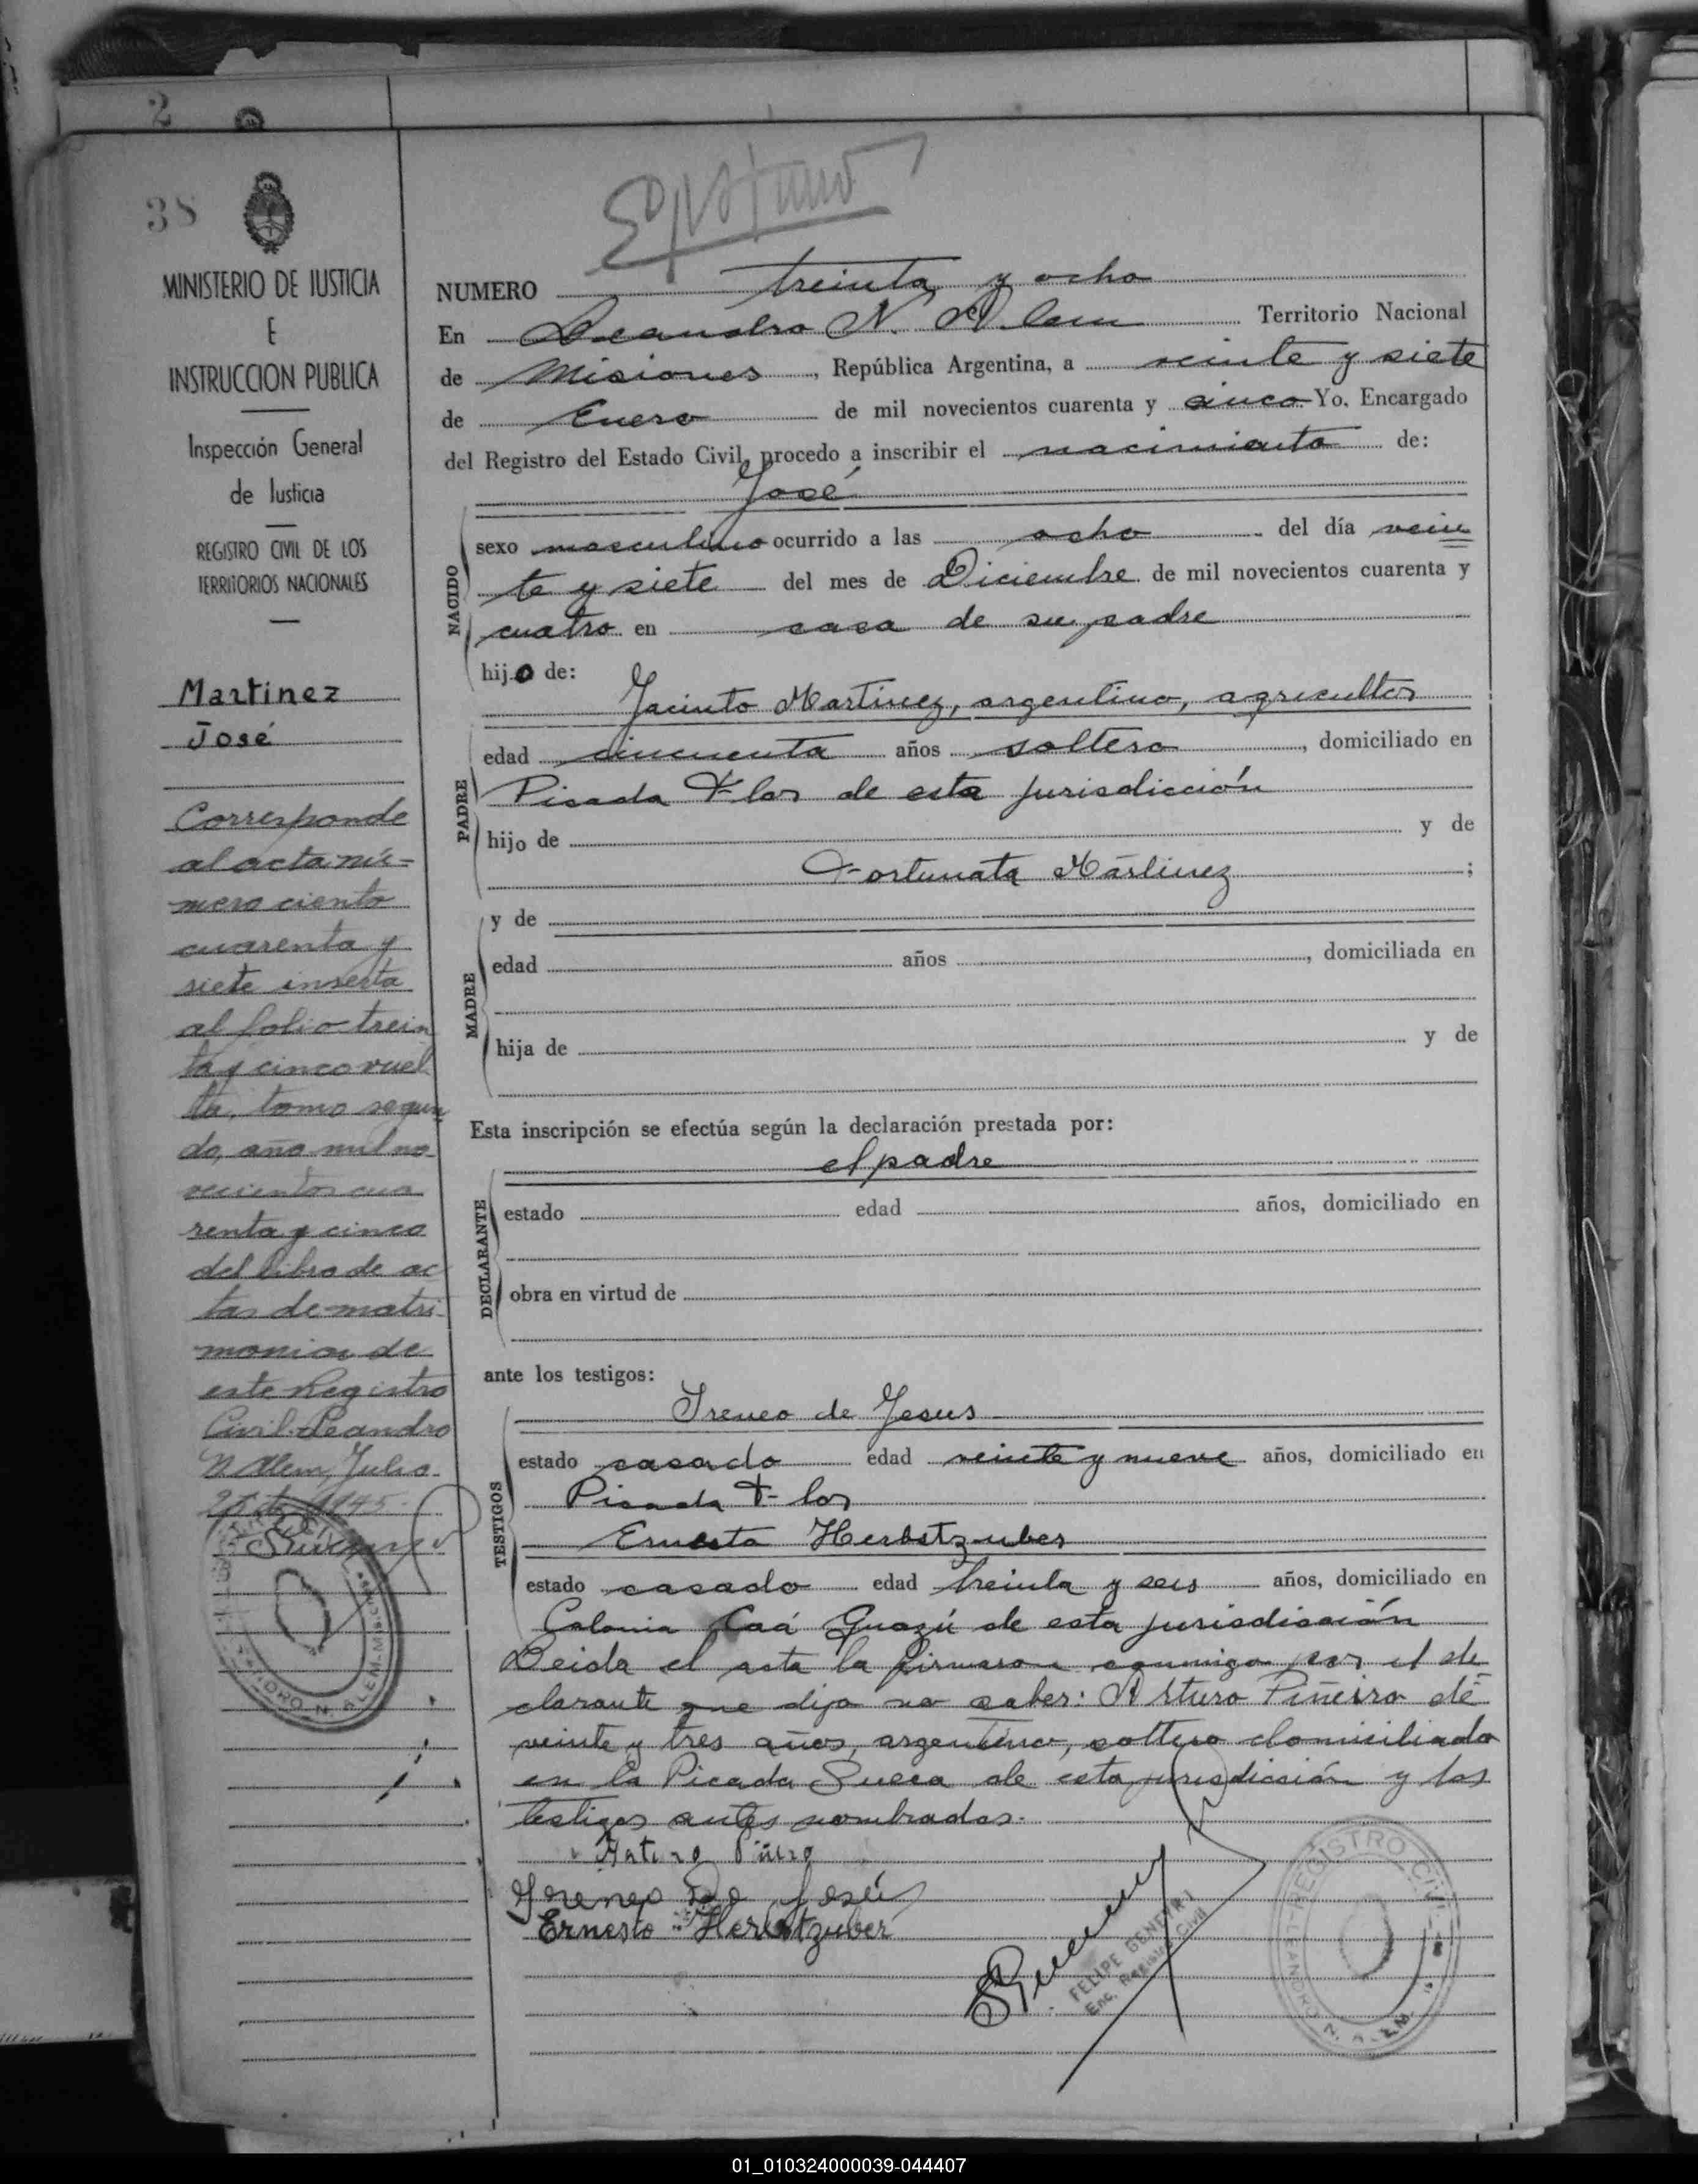 2
38
MINISTERIO DE JUSTICIA
E
INSTRUCCION PUBLICA
Inspección General
de Justicia
REGISTRO CIVIL DE LOS
TERRITORIOS NACIONALES
Martinez
José
Corresponde
al acta nú-
mero ciento
cuarenta y
siete inserta
al folio trein
ta y cinco vuel
ta, tomo segun
do, año mil no-
vecientos cua
renta y cinco
del libro de ac
tas de matri-
monios de
este Registro
Civil. Leandro
N. Alem, Julio
1945.
NUMERO treinta y ocho
En Leandro N. Alem Territorio Nacional
de Misiones, República Argentina, a veinte y siete
de Enero de mil novecientos cuarenta y cinco Yo, Encargado
del Registro del Estado Civil, procedo a inscribir el nacimiento de:
José
NACIDO
sexo masculino ocurrido a las ocho del día vein
te y siete del mes de Diciembre de mil novecientos cuarenta y
cuatro en casa de su padre
hijo de:
PADRE
Jacinto Martinez, argentino, agricultor
edad cincuenta años soltero, domiciliado en
Picada Flor de esta jurisdicción
hijo de y de
Fortunata Mártinez ;
MADRE
y de
edad años , domiciliada en
hija de y de
Esta inscripción se efectúa según la declaración prestada por:
DECLARANTE
el padre
estado edad años, domiciliado en
obra en virtud de
ante los testigos:
TESTIGOS
Ireneo de Jesus
estado casado edad veinte y nueve años, domiciliado en
Picada Flor
Ernesto Herbstzuber
estado casado edad treinta y seis años, domiciliado en
Colonia Caá Guazú de esta jurisdicción
Leida el acta la firmaron conmigo por el de
clarante que dijo no saber: Arturo Piñeiro de
veinte y tres años, argentino, soltero domiciliado
en la Picada Sueca de esta jurisdicción y los
testigos antes nombrados.
Arturo
Ireneo De Jesús
Ernesto Herbstzuber
FELIPE
Enc. Registro Civil
REGISTRO CIVIL
LEANDRO N. ALEM
01_010324000039-044407